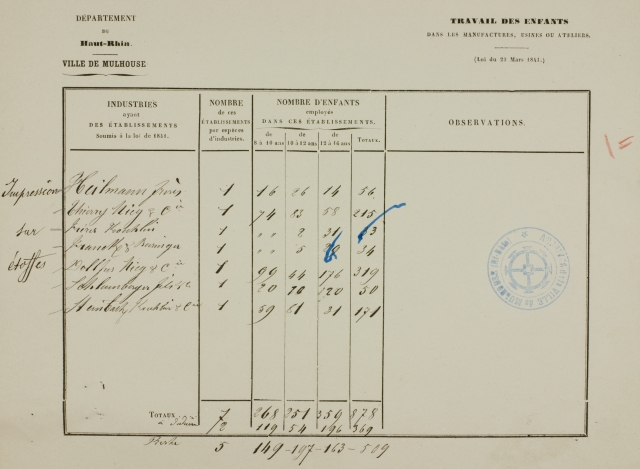 DÉPARTEMENT
DU
Haut-Rhin.
VILLE DE MULHOUSE
TRAVAIL DES ENFANTS
DANS LES MANUFACTURES, USINES OU ATELIERS.
(Loi du 22 Mars 1841.)
INDUSTRIES ayant DES ÉTABLISSEMENTS Soumis à la loi de 1841.
NOMBRE de ces ÉTABLISSEMENTS par espèces d'industries.
NOMBRE D'ENFANTS employés DANS CES ÉTABLISSEMENTS.
de 8 à 10 ans de 10 à 12 ans de 12 à 16 ans TOTAUX.
OBSERVATIONS.
1=
Impression Heilmann frères 1 16 26 14 56
Thierry Mieg & Cie 1 74 83 58 215
sur Koechlin 1 " " 2 31
1 " " 5 34
étoffes Dollfus Mieg & Cie 1 99 44 176 319
Schlumberger fils & Cie 1 20 50
Steinbach, Koechlin & Cie 1 59 61 171
TOTAUX 7 268 251 359 878
à déduire 2 119 54 196 369
Reste 5 149 - 197 - 163 - 509